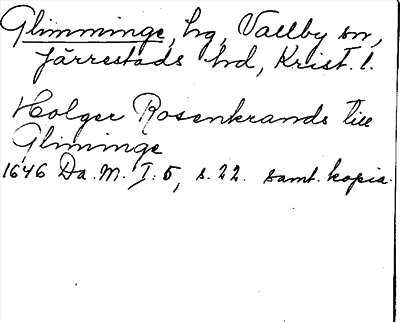 Glimminge, hg, Vallby sn,
Järrestads hd, Krist. l.
Holger Rosenkrands till
Gliminge
1646 Da. M. I. 5, s. 22. samt. kopia.